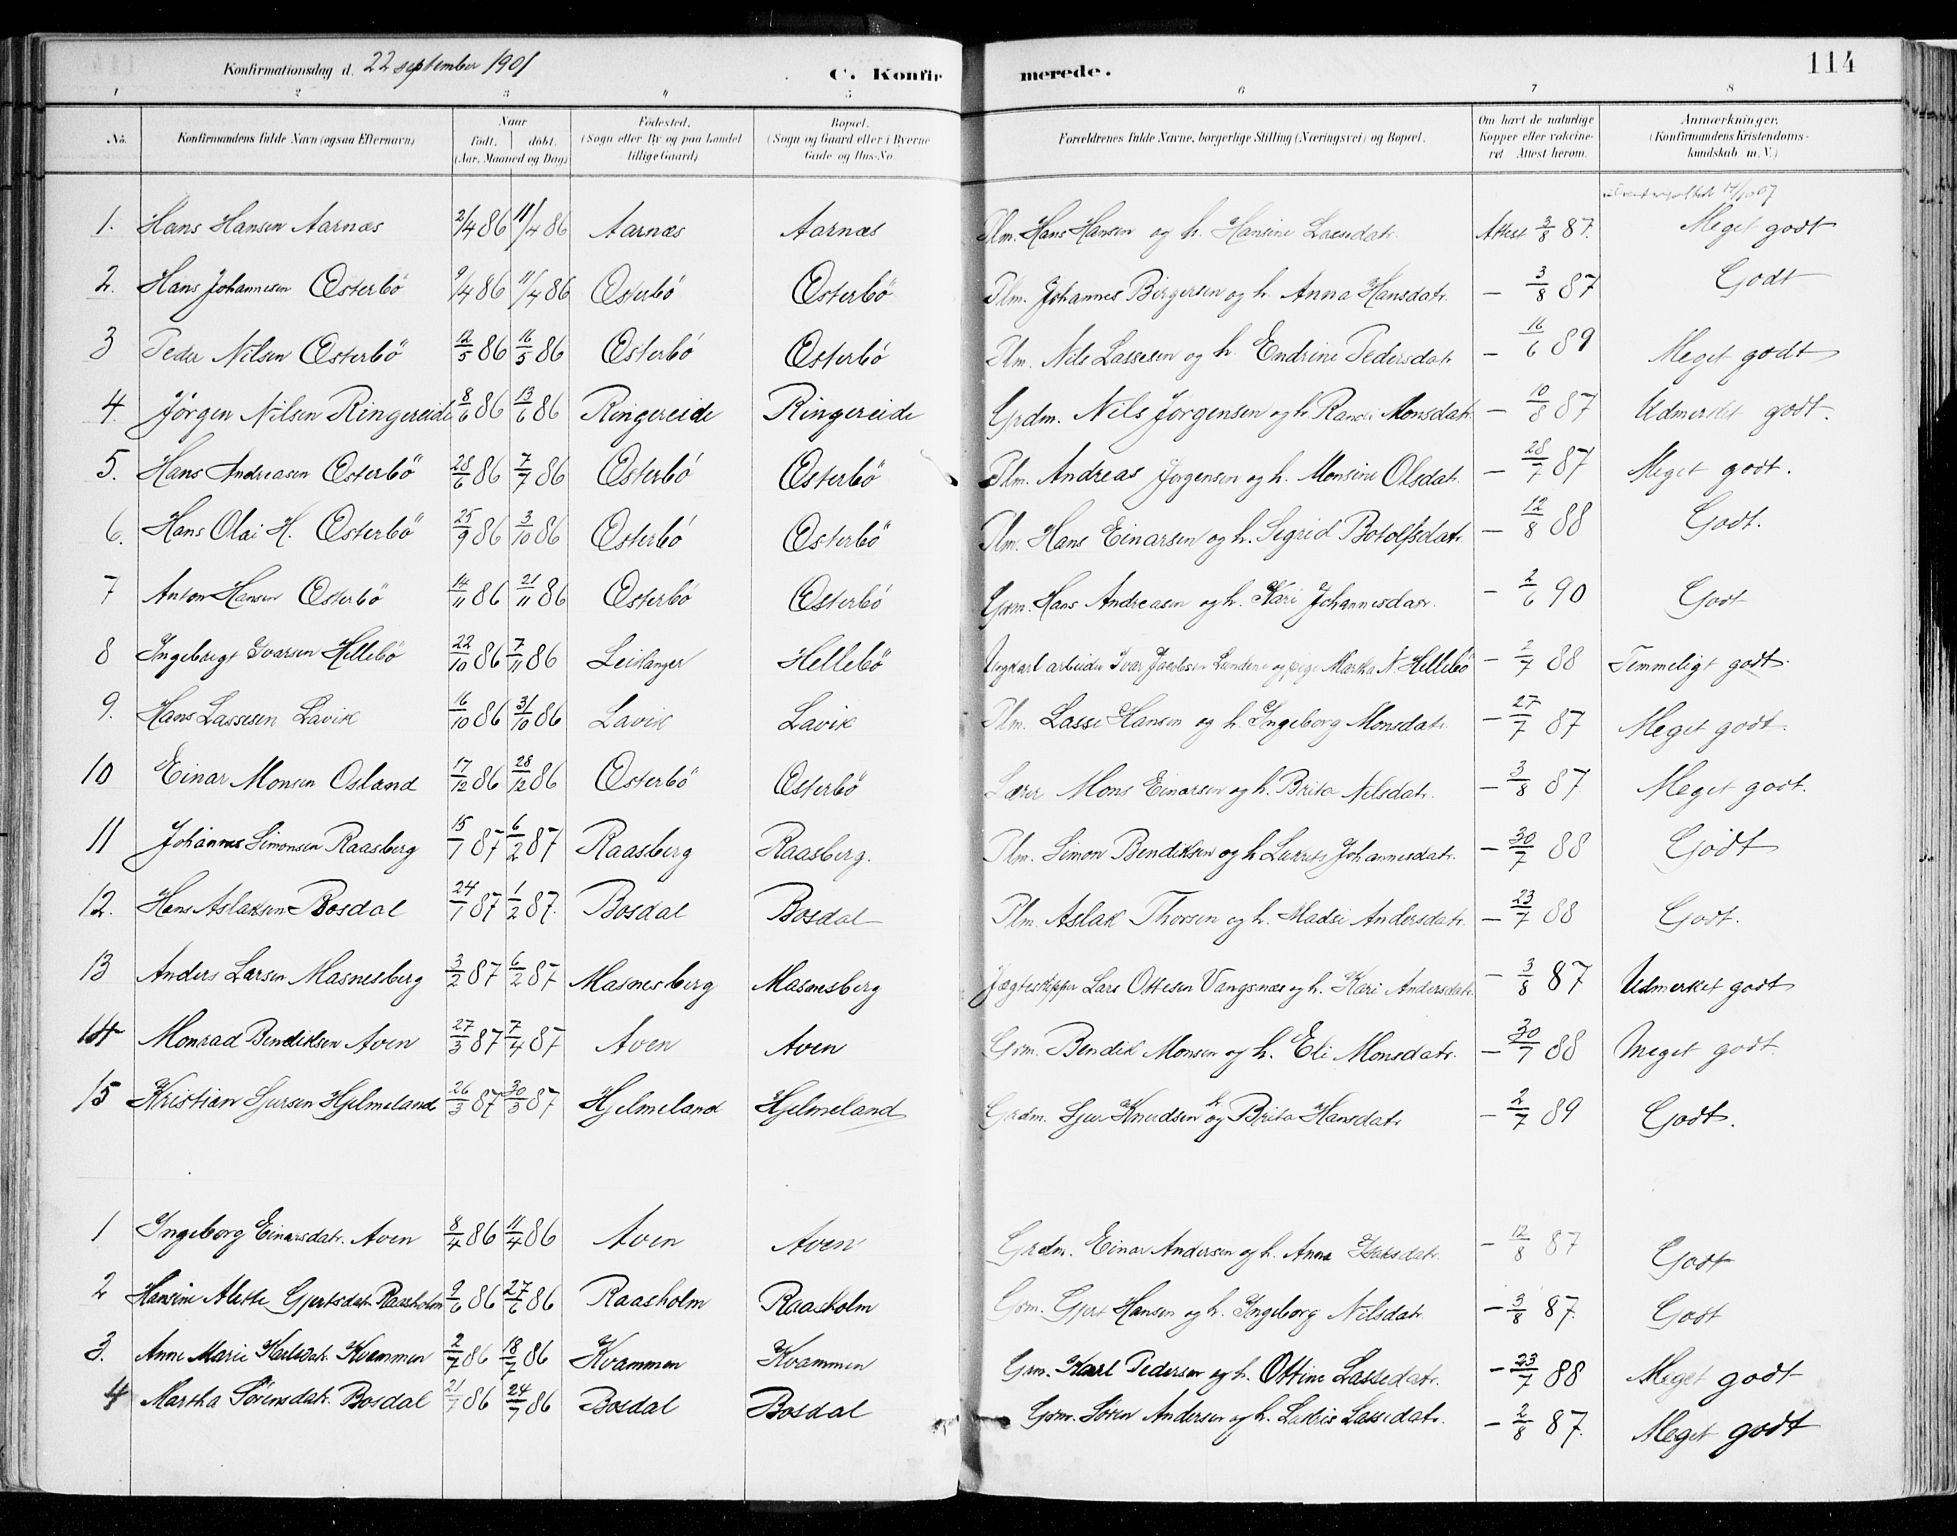 Konfirmationsdag d. 22 september 1901 C. Konfirmerede. 114
1 2 3 4 5 6 7 8
No. Konfirmandens fulde Navn (ogsaa Efternavn) Naar født. døbt. (Aar, Maaned og Dag) Fødested. (Sogn eller By og paa Landet tillige Gaard) Bopæl. (Sogn og Gaard eller i Byerne Gade og Hus-No. Forældrenes fulde Navne, borgerlige Stilling (Næringsvei) og Bopæl. Om havt de naturlige Kopper eller vakcineret. Attest herom. Anmærkninger. (Konfirmandens Kristendomskundskab m. V.)
1. Hans Hansen Aarnæs 2/4 86 11/4 86 Aarnæs Aarnæs Plm. Hans Hansen og h. Hansine Lassedatr. Attest 3/8 87. Meget godt
2. Hans Johannesen Østerbö 9/4 86 11/4 86 Østerbö Østerbö Plm. Johannes Birgersen og h. Anna Hansdatr. - 3/8 87 Godt
3 Peder Nilsen Østerbö 12/5 86 16/5 86 Østerbö Østerbö Plm. Nils Lassesen og h. Endrine Pedersdatr. - 16/6 89 Meget godt
4. Jörgen Nilsen Ringereide 8/6 86 13/6 86 Ringereide Ringereide Grdm. Nils Jörgensen og h. Randi Monsdatr. - 10/8 87 Udmerket godt.
5. Hans Andreasen Østerbö 28/6 86 7/7 86 Østerbö Østerbö Plm. Andreas Jörgensen og h. Monsine Olsdatr. - 28/7 87 Meget godt.
6. Hans Olai H. Østerbö 25/9 86 3/10 86 Østerbö Østerbö Plm. Hans Einarsen og h. Sigrid Botolfsdatr. - 12/8 88 Godt.
7 Anton Hansen Østerbö 14/11 86 21/11 86 Østerbö Østerbö Grm. Hans Andreasen og h. Kari Johannesdatr. - 2/6 90 Godt
8 Ingebrigt Ivarsen Hellebö 22/10 86 7/11 86 Leikanger Hellebö Ungkarl arbeider Ivar Jacobsen Lundene og pige Martha N. Hellebö - 2/7 88 Temmeligt godt.
9. Hans Lassesen Lavik 16/10 86 31/10 86 Lavik Lavik Plm. Lasse Hansen og h. Ingeborg Monsdatr. - 27/7 87 Meget godt.
10 Einar Monsen Osland 17/12 86 28/12 86 Østerbö Østerbö Lærer Mons Einarsen og h. Brita Nilsdatr. - 3/8 87 Meget godt.
11 Johannes Simonsen Raasberg 15/1 87 6/2 87 Raasberg Raasberg. Plm. Simon Bendiksen og h. Lakris Johannesdatr. - 30/7 88 Godt
12. Hans Aslaksen Bosdal 24/1 87 1/2 87. Bosdal Bosdal Plm. Aslak Thorsen og h. Madsi Andersdatr. - 23/7 88 Godt.
13 Anders Larsen Masnesberg 3/2 87 6/2 87 Masnesberg Masnesberg Jægteskipper Lars Ottesen Vangsnæs og h. Kari Andersdatr. - 3/8 87 Udmerket godt
14 Monrad Bendiksen Aven 27/3 87 7/4 87 Aven Aven Grm. Bendik Monsen og h. Eli Monsdatr. - 30/7 88 Meget godt.
15 Kristian Sjursen Hjelmeland 26/3 87 30/3 87 Hjelmeland Hjelmeland Grdm. Sjur Knudsen og h. Brita Hansdatr. - 2/7 89 Godt.
1 Ingeborg Einarsdatr. Aven 8/4 86 11/4 86 Aven Aven Grdm. Einar Andersen og h. Anna - 12/8 87 Godt
2 Hansine Alette Gjertsdatr. Raasholm 9/6 86 27/6 86 Raasholm Raasholm Grm. Gjert Hansen og h. Ingeborg Nilsdatr. - 3/8 87. Godt
3. Anne Marie Karlsdatr. Kvammen 2/7 86 18/7 86 Kvammen Kvammen Grm. Karl Pedersen og h. Ottine Lassedatr. - 23/7 88 Meget godt
4 Martha Sörensdatr. Bosdal 21/7 86 24/7 86 Bosdal Bosdal Grm. Sören Andersen og h. Lakris Lassedatr. - 2/8 87. Meget godt